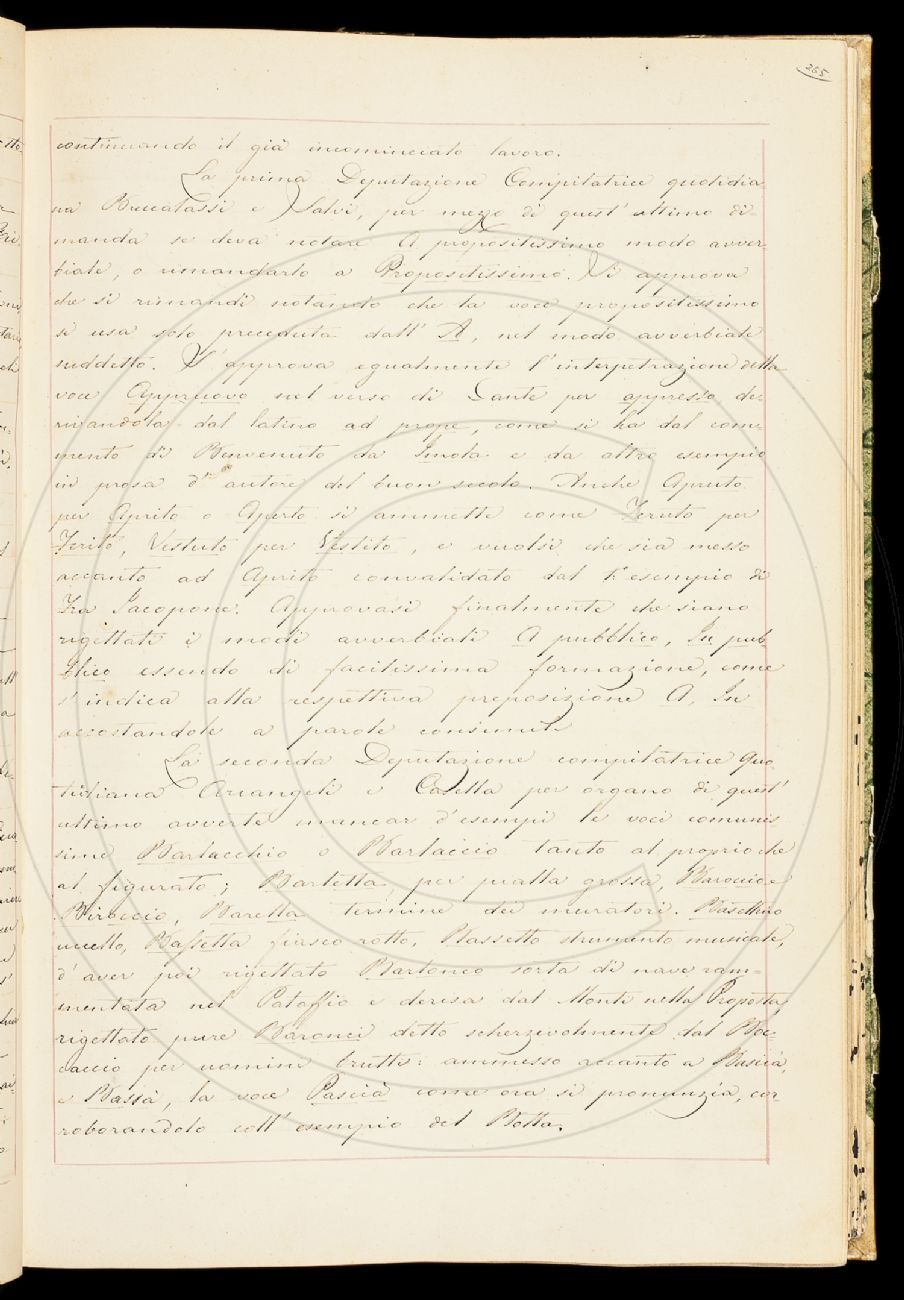 265
continuando il già incominciato lavoro.
La prima Deputazione Compilatrice quotidia-
na Buccatassi e Salvi, per mezzo di quest' ultimo di-
manda se deva notare A propositissimo modo avver-
biale, o rimandarlo a Propositissimo. Si approva
che si rimandi notando che la voce propositissimo
si usa solo preceduta dall' A, nel modo avverbiale
suddetto. S' approva egualmente l' interpetrazione della
voce Appruovo nel verso di Dante per appresso de-
rivandola dal latino ad prope, come si ha dal com-
mento di Benvenuto da Imola e da altro esempio
in prosa d' autore del buon secolo. Anche Apruto
per Aprito o Aperto si ammette come Feruto per
Ferito, Vestuto per Vestito, e vuolsi che sia messo
accanto ad Aprito convalidato dal esempio di
Fra Jacopone. Approvasi finalmente che siano
rigettati i modi avverbiali A pubblico, In pub-
blico essendo di facilissima formazione, come
s' indica alla respettiva preposizione A, In
accostandole a parole consimili
La seconda Deputazione compilatrice quo-
tidiana Arcangeli e Casella per organo di quest'
ultimo avverte mancar d' esempi le voci comunis-
sime Barlacchio o Barlaccio tanto al proprio che
al figurato; Barletta, per pialla grossa, Baroccio e
Biroccio, Barella termine dei muratori. Baschino
uccello, Bassetta fiasco rotto, Bassetto strumento musicale,
d' aver poi rigettato Bartoneo sorta di nave ram-
mentata nel Pataffio e derisa dal Monti nella Proposta,
rigettato pure Baronci detto scherzevolmente dal Boc-
caccio per uomini brutti: ammesso accanto a Basicià,
e Bassà, la voce Pascià come ora si pronunzia, cor-
roborandolo coll' esempio del Botta.